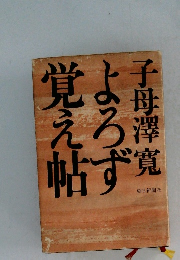 子母澤寛
よろず
覚え帖